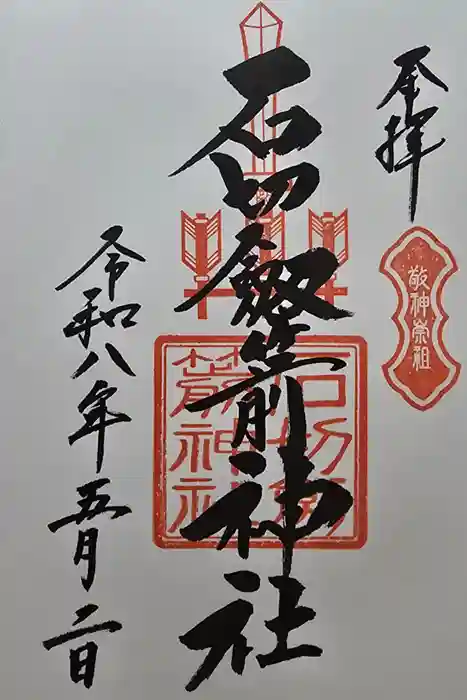 奉拝
敬神崇祖
石切劔箭神社
石切劔箭神社
令和八年五月二日